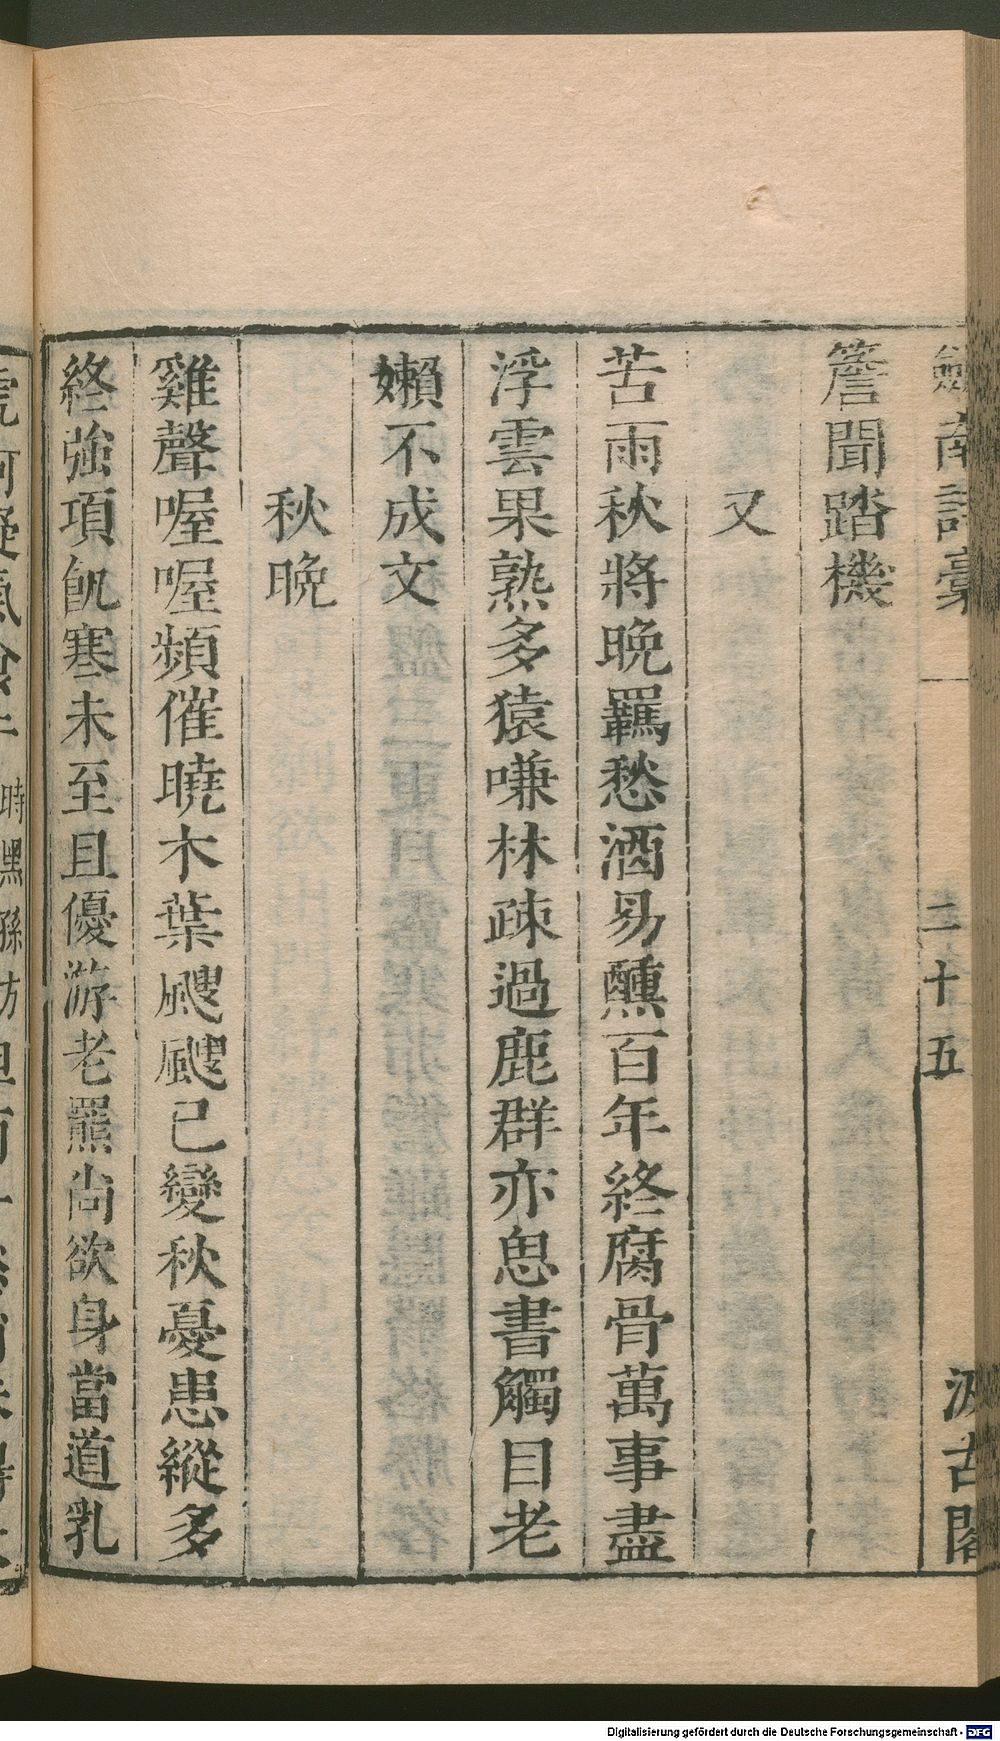 劍南詩稾
二十五
汲古閣
簷聞踏機
又
苦雨秋將晚羈愁酒易醺百年終腐骨萬事盡
浮雲果熟多猿嗛林疎過鹿群亦思書觸目老
嬾不成文
秋晚
雞聲喔喔頻催曉木葉颼颼已變秋憂患縱多
終強項飢寒未至且優游老羆尚欲身當道乳
時黑孫方
Digitalisierung gefördert durch die Deutsche Forschungsgemeinschaft - DFG